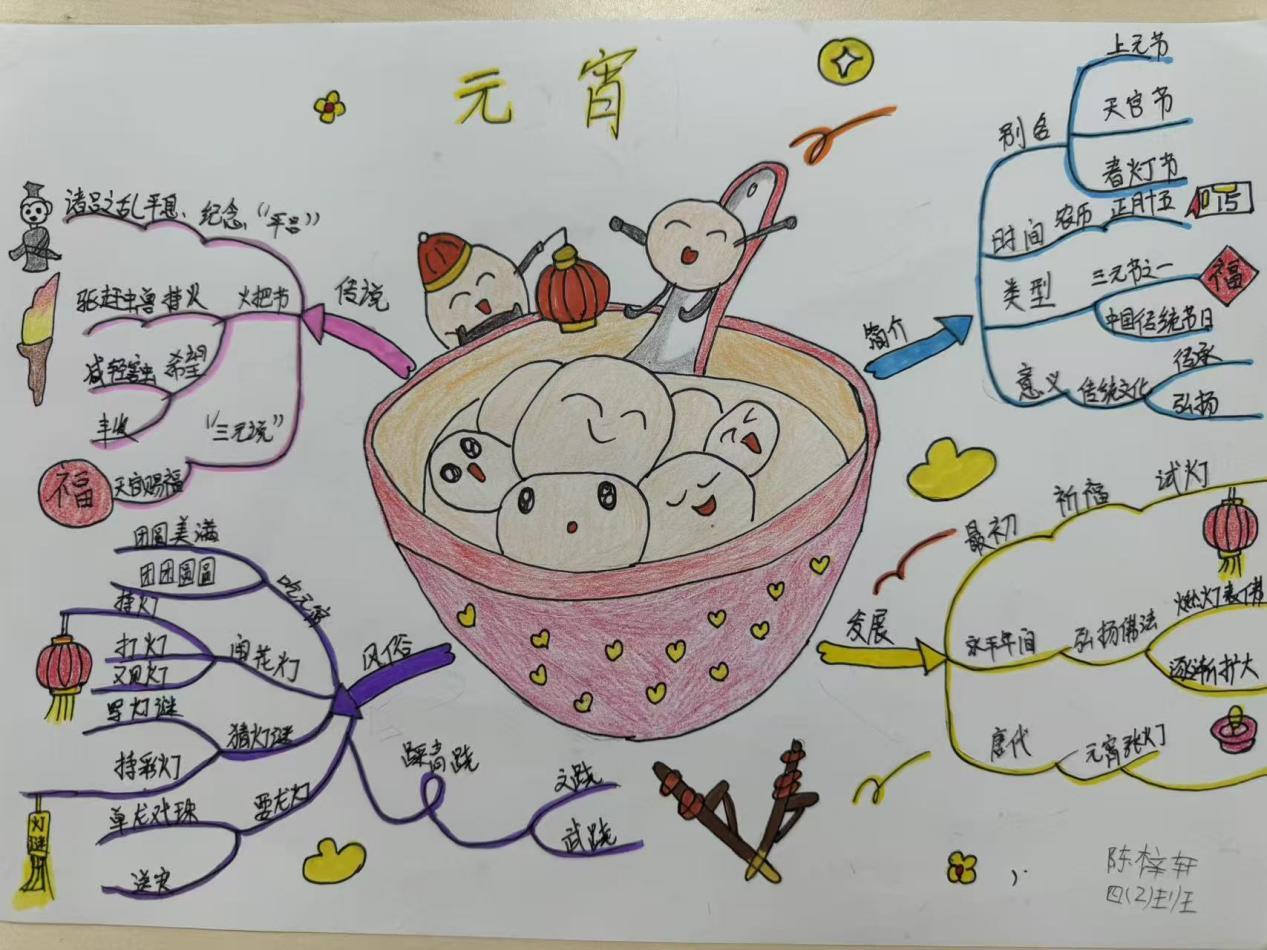 元宵
简介
别名
上元节
天宫节
春灯节
时间
农历
正月十五
15
类型
三元节之一
中国传统节日
福
意义
传统文化
传承
弘扬
传说
诸吕之乱平息、纪念,“平吕”
火把节
持火
驱赶虫兽
希望
减轻害虫
丰收
“三元说”
天官赐福
福
风俗
吃元宵
团圆美满
团团圆圆
闹花灯
挂灯
打灯
观灯
猜灯谜
写灯谜
持彩灯
灯谜
耍龙灯
单龙戏珠
送灾
踩高跷
文跷
武跷
发展
最初
祈福
试灯
永平年间
弘扬佛法
燃灯表佛
逐渐扩大
唐代
元宵张灯
陈梓轩
四(2)班